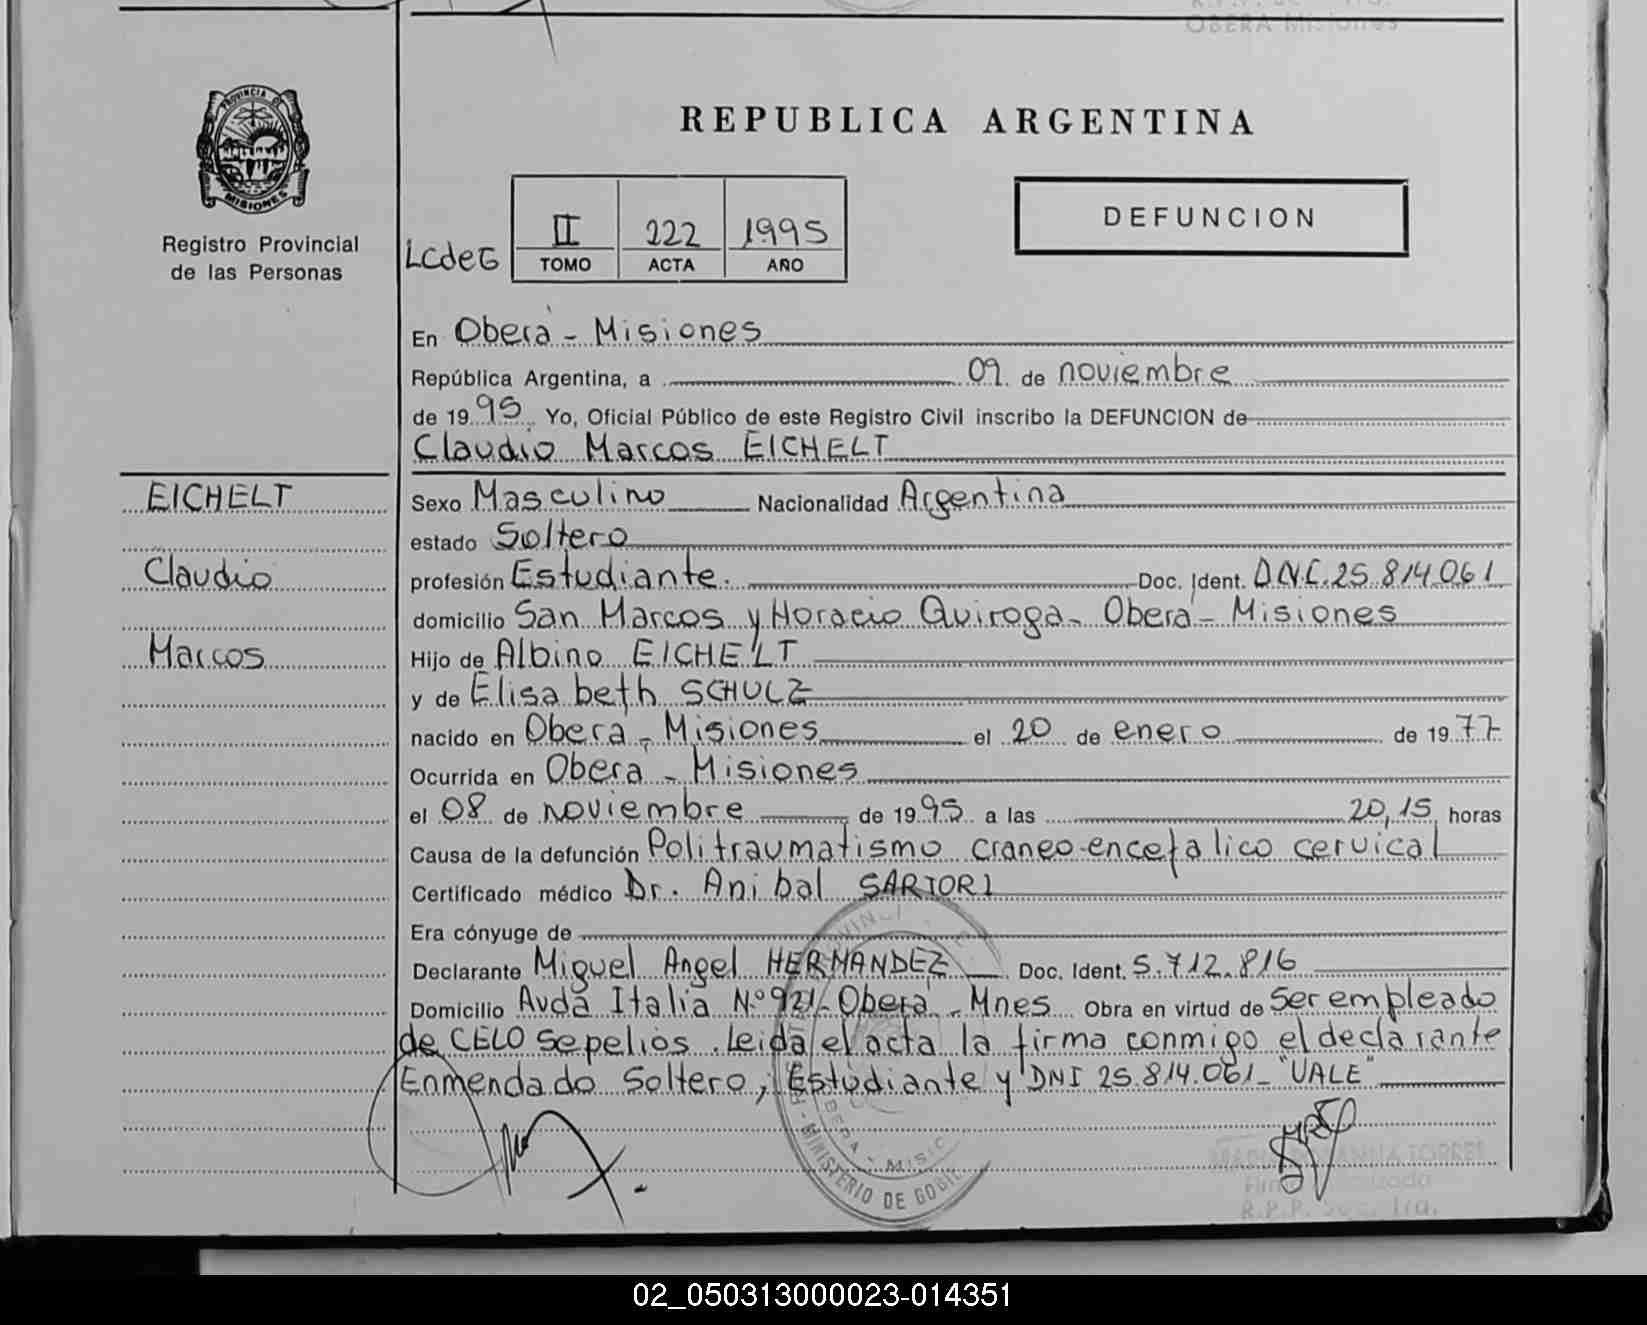 OBERA Misiones
PROVINCIA DE
MISIONES
Registro Provincial
de las Personas
REPUBLICA ARGENTINA
DEFUNCION
LCdeG
II 222 1995
TOMO ACTA AÑO
En Oberá - Misiones
República Argentina, a 09 de noviembre
de 19 95 Yo, Oficial Público de este Registro Civil inscribo la DEFUNCION de
Claudio Marcos EICHELT
EICHELT
Claudio
Marcos
Sexo Masculino Nacionalidad Argentina
estado Soltero
profesión Estudiante. Doc. Ident. D.N.I. 25.814.061
domicilio San Marcos y Horacio Quiroga - Oberá - Misiones
Hijo de Albino EICHELT
y de Elisabeth SCHULZ
nacido en Oberá - Misiones el 20 de enero de 19 77
Ocurrida en Oberá - Misiones
el 08 de noviembre de 19 95 a las 20,15 horas
Causa de la defunción Politraumatismo craneo-encefalico cervical
Certificado médico Dr. Anibal SARTORI
Era cónyuge de
Declarante Miguel Angel HERNANDEZ Doc. Ident. 5.712.816
Domicilio Avda Italia Nº 921 - Oberá - Mnes Obra en virtud de ser empleado
de CELO sepelios. Leida el acta la firma conmigo el declarante
Enmendado Soltero, Estudiante y DNI 25.814.061 - "VALE"
MINISTERIO DE GOBIE
TORRES
R.P.P.
02_050313000023-014351